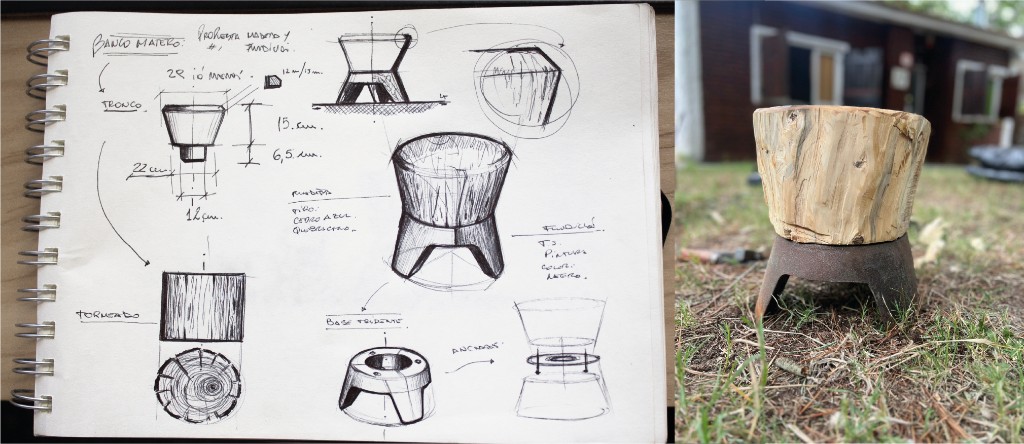 BANCO MATERO:
PROPUESTA MADERA Y
FUNDICIÓN.
28
12 cm/13 cm.
TRONCO.
15. cm.
6,5. cm.
22 cm.
12 cm.
MADERA
TIPO:
CEDRO AZUL
QUEBRACHO.
FUNDICIÓN
PINTURA
COLOR:
NEGRO.
TORNEADO
BASE TRIDENTE
ANCLAJES: